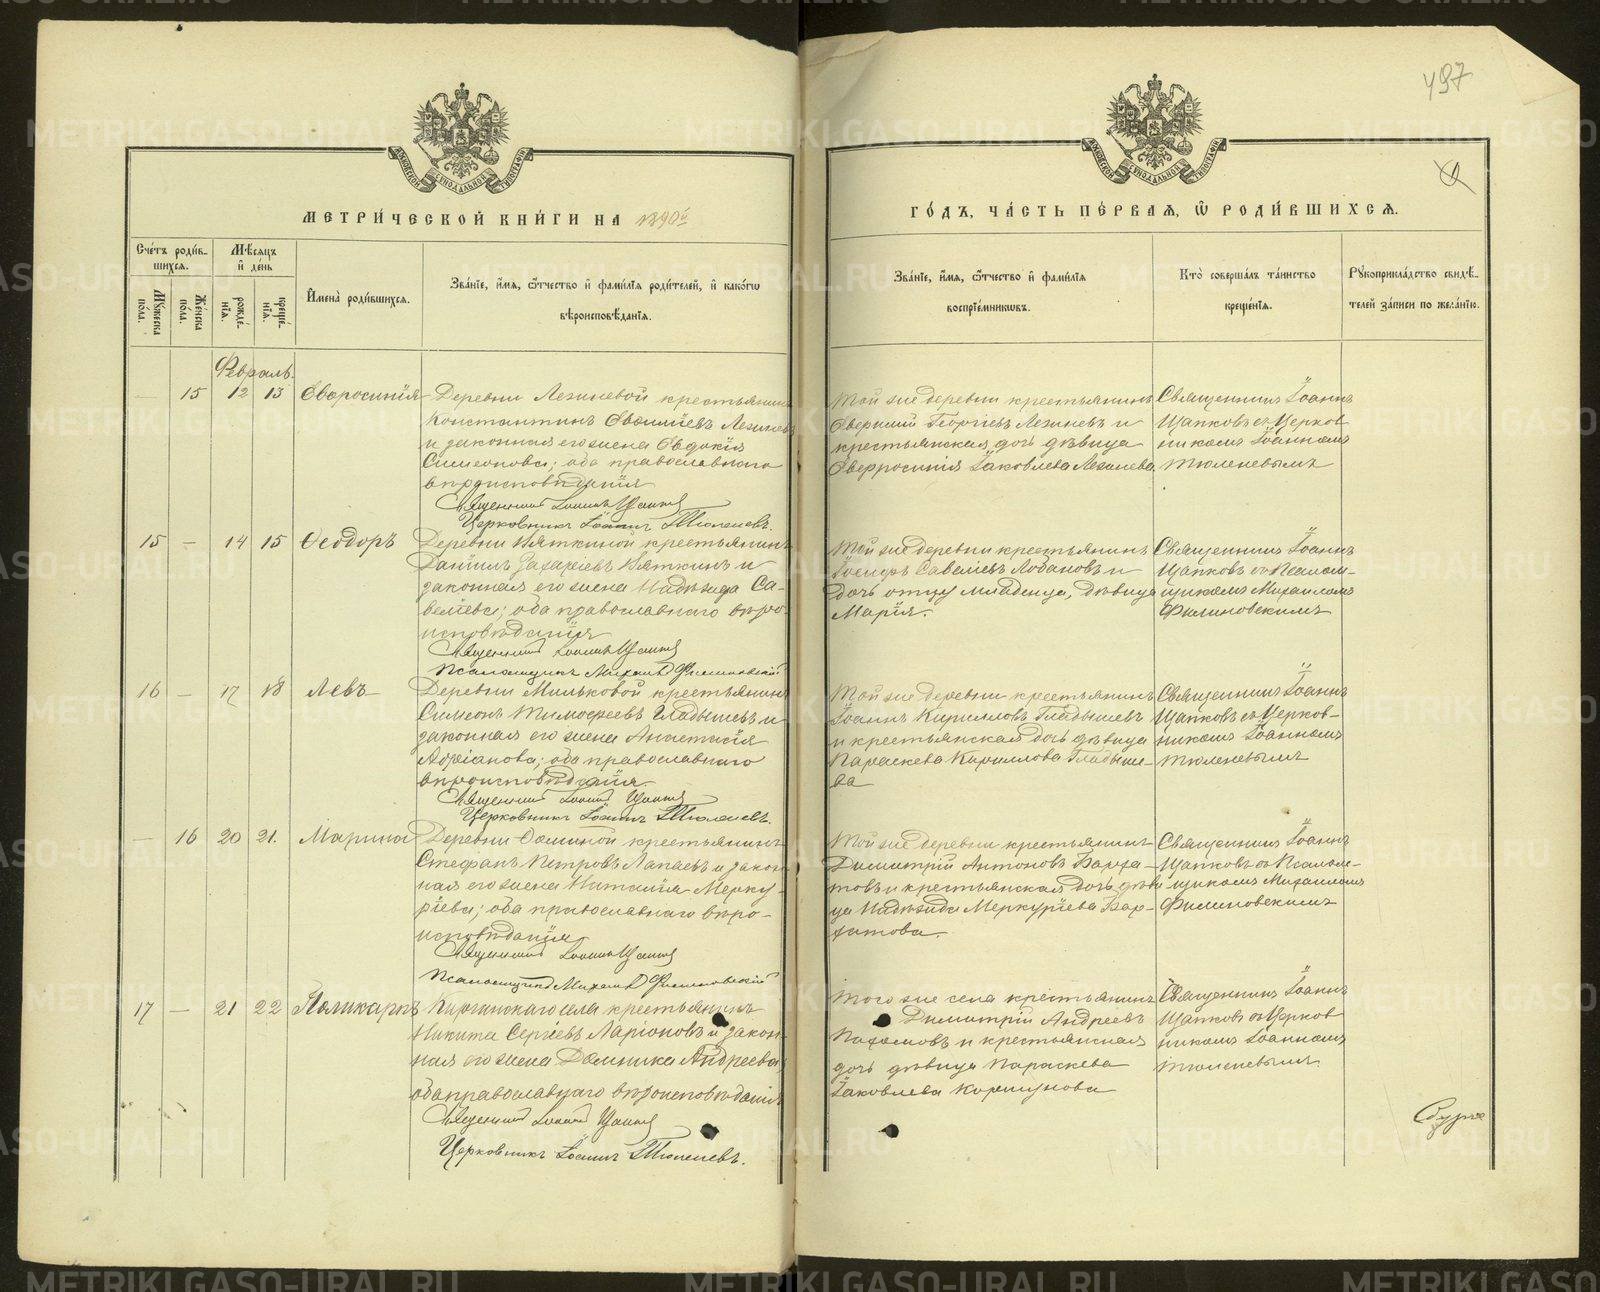 497
МОСКОВСКОЙ СѴНОДАЛЬНОЙ ТИПОГРАФІИ
МОСКОВСКОЙ СѴНОДАЛЬНОЙ ТИПОГРАФІИ
МЕТРИ́ЧЕСКОЙ КНИ́ГИ НА 1890й
ГО́ДЪ, ЧА́СТЬ ПЕ́РВАЯ, Ѡ РОДИ́ВШИХСЯ.
Сче́тъ роди́в-
шихся.
Мꙋ́жеска по́ла.
Же́нска по́ла.
Мѣ́сяцъ
и҆ де́нь
рожде́-
нїя.
креще́-
нїя.
И҆мена̀ роди́вшихся.
Зва́нїе, и҆́мя, ѻ҆́тчество и҆ фами́лїя роди́телей, и҆ како́гѡ
вѣроисповѣ́данїя.
Зва́нїе, и҆́мя, ѻ҆́тчество и҆ фами́лїя
воспрїе́мникѡвъ.
Кто̀ соверша́лъ та́инство
креще́нїя.
Рꙋкоприкла́дство свидѣ́-
телей за́писи по жела́нїю.
Февраль.
— 15 12 13
Деревни крестьянинъ
Константинъ
и законная его жена Евдокія
Симеонова; оба православнаго
вѣроисповѣданія
Священникъ Іоаннъ Цапковъ
Церковникъ Іоаннъ Тюленевъ.
Той же деревни крестьянинъ
Георгіевъ и
крестьянская дочь дѣвица
Іаковлева
Священникъ Іоаннъ
Цапковъ съ Церков
никомъ Іоанномъ
Тюленевымъ
15 — 14 15 Ѳеодоръ
Деревни Вяткиной крестьянинъ
Даніилъ Захаріевъ Вяткинъ и
законная его жена Надежда Са-
веліева; оба православнаго вѣро-
исповѣданія
Священникъ Іоаннъ Цапковъ
Псаломщикъ Михаилъ Филиновскій
Той же деревни крестьянинъ
Іосифъ Савеліевъ Лобановъ и
дочь отцу младенца, дѣвица
Марія.
Священникъ Іоаннъ
Цапковъ съ Псалом-
щикомъ Михаиломъ
Филиновскимъ
16 — 17 18 Левъ
Деревни Мильковой крестьянинъ
Симеонъ Тимоѳеевъ Гладышевъ и
законная его жена Анастасія
Адріанова; оба православнаго
вѣроисповѣданія.
Священникъ Іоаннъ Цапковъ
Церковникъ Іоаннъ Тюленевъ.
Той же деревни крестьянинъ
Іоаннъ Кирилловъ Гладышевъ
и крестьянская дочь дѣвица
Параскева Кириллова Гладыше-
ва
Священникъ Іоаннъ
Цапковъ съ Церков-
никомъ Іоанномъ
Тюленевымъ
— 16 20 21. Марина
Деревни Ѳоминой крестьянинъ
Стефанъ Петровъ Лапаевъ и закон
ная его жена Наталія Мерку-
ріева; оба православнаго вѣро-
исповѣданія
Священникъ Іоаннъ Цапковъ
Псаломщикъ Михаилъ Филиновскій
Той же деревни крестьянинъ
Димитрій Антоновъ Барха-
товъ и крестьянская дочь дѣви
ца Надежда Меркуріева Бар-
хатова.
Священникъ Іоаннъ
Цапковъ съ Псалом-
щикомъ Михаиломъ
Филиновскимъ
17 — 21 22 Поликарпъ
Киргинскаго села крестьянинъ
Никита Сергіевъ Ларіоновъ и закон-
ная его жена Домника Андреева,
оба православнаго вѣроисповѣданія
Священникъ Іоаннъ Цапковъ
Церковникъ Іоаннъ Тюленевъ.
Того же села крестьянинъ
Димитрій Андреевъ
Пахомовъ и крестьянская
дочь дѣвица Параскева
Іаковлева Коршунова
Священникъ Іоаннъ
Цапковъ съ Церков
никомъ Іоанномъ
Тюленевымъ
METRIKI.GASO-URAL.RU